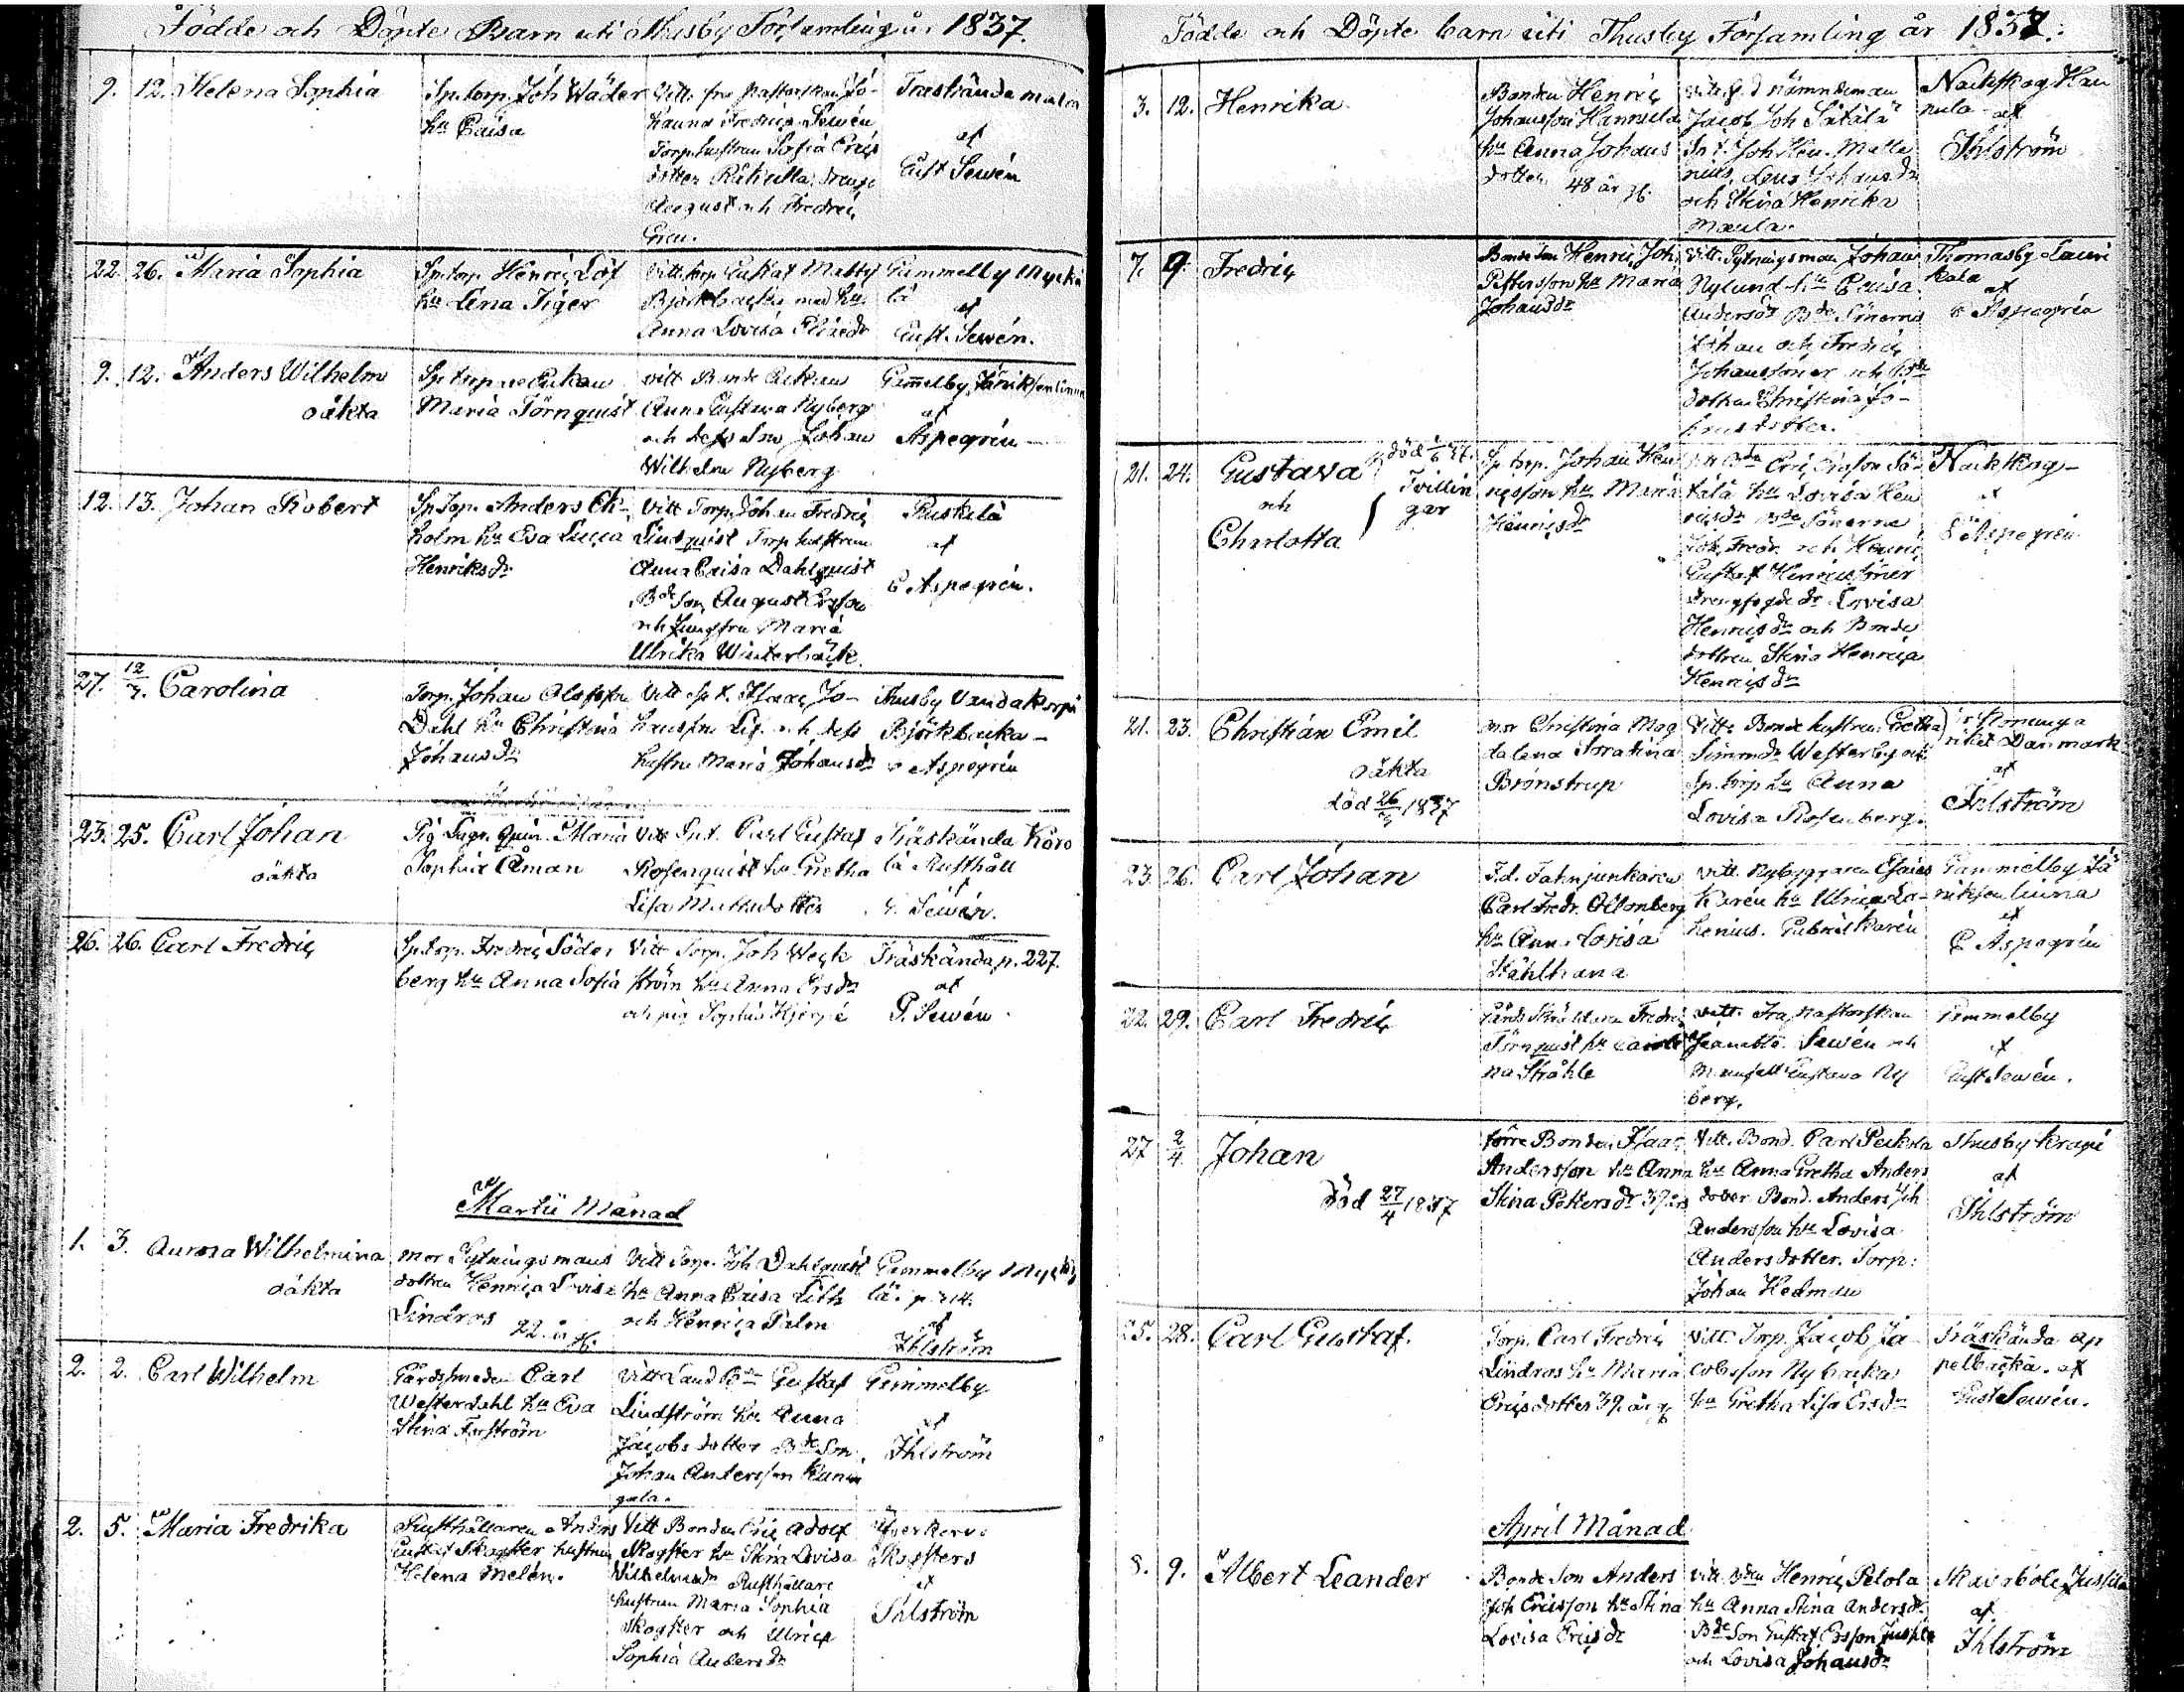 Födde och Döpte Barn uti Thusby Församling år 1837.
9. 12. Helena Sophia
Sp.torp. Joh Wäder
hu Caisa
Vitt. fru Pastorskan Jo-
hanna Fredrica Sewén
Torp.hustrun Sofia Erics
dotter
August och Fredric
Träskända
af
Gust Sewén
22. 26. Maria Sophia
Sp.torp. Henric Löf
hu Lena Tiger
Vitt. torp Gustaf Matts
Björkbacka med hu
Anna Lovisa
Gammelby Myckä
lä
af
Gust. Sewén.
9. 12. Anders Wilhelm
oäkta
Sp.torpare Enkan
Maria Törnquist
vitt Bonde Enkan
Anna Gustava Nyberg
och dess Son Johan
Wilhelm Nyberg
Gammelby Jäniksenlinna
af
Aspegrén
12. 13. Johan Robert
Sp.Torp. Anders Ek-
holm hu Eva Lucia
Henriksdr
Vitt Torp. Johan Fredric
Lindquist Torp hustrun
Anna Caisa Dahlquist
Bde Son August Ersson
och Jungfru Maria
Ulrika Winterbäck.
Ruskela
af
C Aspegrén.
27. 12/3. Carolina
Torp. Johan Olofsson
Dahl hu Christina
Johansdr
Vitt Sp.t. Isaac Jo-
hansson och dess
hustru Maria Johansdr
Thusby Vandakorpi
Björkbacka -
Aspegrén
23. 25. Carl Johan
oäkta
Pig Maria
Sophia Åman
Vitt Sp.t. Carl Gustaf
Rosenquist hu Gretha
Lisa Mattsdotter
Träskända Koro
la Rusthåll
G. Sewén.
26. 26. Carl Fredric
Sp.torp. Fredric Söder
berg hu Anna Sofia
Vitt Torp. Joh Weck
ström hu Anna Ersdr
och pig Sophia
Träskända p. 227.
af
G. Sewén.
Martii Månad
1. 3. Aurora Wilhelmina
oäkta
mor Sytningsmans
dottren Henrica Lovisa
Lindros
22. år gl.
Vitt Torp. Joh Dahlquist
hu Anna Caisa
och Henrica Palm
Gammelby Myckä
lä. p. 214.
af
Ihlström
2. 2. Carl Wilhelm
Gårdssmeden Carl
Westerdahl hu Eva
Stina Forström
Vitt Land Bde Gustaf
Lindström hu Anna
Jacobsdotter Bde Son
Johan Andersson
Gammelby
af
Ihlström
2. 5. Maria Fredrika
Rusthållaren Anders
Gustaf Skogster hustrun
Helena Melén.
Vitt Bonden Eric Adolf
Skogster hu Stina Lovisa
Wilhelmsdr Rusthållare
hustrun Maria Sophia
Skogster och Ulrica
Sophia Andersdr
Öfverkervo
Skogsters
af
Ihlström
Födde och Döpte barn uti Thusby Församling år 1837.
3. 12. Henrika
Bonden Henric
Johansson Hannula
hu Anna Johans
dotter 48 år gl.
vitt f.d Nämndeman
Jacob Joh Sätälä
Sp.t. Joh Hen.
Johansdr
och Stina Henrika
Nackskog Han
nula af
Ihlström
7. 9. Fredric
Bonde Son Henric Joh
Pettersson hu Maria
Johansdr
Vitt. Sytningsman Johan
Nylund hu Caisa
Andersdr Bde Sönerna
Johan och Fredric
Johanssöner och Bde
dottren Christina Jo-
hansdotter.
Thomasby Lauri
kala
af
C Aspegrén
21. 24. Gustava
och
Charlotta
Tvillin
gar
Sp.torp. Johan Hen
ricsson hu Maria
Henricsdr
Vitt Bdn Eric Ersson Sä-
tälä hu Lovisa Hen
ricsdr Bde Sönerna
Joh. Fredr. och Henric
Gustaf Henricssöner
Lovisa
Henricsdr och Bonde
dottren Stina Henrica
Henricsdr
Nackskog -
af
C Aspegrén
21. 23. Christian Emil
oäkta
död 26/3 1837
mor Christina Mag
dalena
Brönstrup
Vitt. Bonde hustrun Gretha
Simonsdr Westerby och
Sp.torp hu Anna
Lovisa Rosenberg.
i Konunga
riket Danmark
af
Ihlström
23. 26. Carl Johan
F.d. Fahnjunkaren
Carl Fredr.
hu Anna Lovisa
Vitt. Nybyggaren Esaias
Karén hu Ulrica
Gabriel Karén
Gammelby Jä
niksenlinna
af
C Aspegrén
22. 29. Carl Fredric
Fredric
Törnquist hu Caroli
na Stråhle
Vitt. Fru Pastorskan
Jeannette Sewén och
Mamsell Gustava Ny
berg.
Gammelby
af
Gust Sewén.
27 2/4. Johan
död 27/4 1837
förre Bonden Isaac
Andersson hu Anna
Stina Pettersdr 39 års
Vitt. Bond. Carl Peckola
hu Anna Gretha Anders
dotter Bond. Anders Joh
Andersson hu Lovisa
Andersdotter. Torp:
Johan Hedman
Thusby Krapi
af
Ihlström
25. 28. Carl Gustaf.
Torp. Carl Fredric
Lindros hu Maria
Ericsdotter 39. år gl
Vitt. Torp. Jacob Ja
cobsson Nybacka
hu Gretha Lisa Ersdr
Träskända Ap
pelbacka. af
Gust Sewén.
April Månad
8. 9. Albert Leander
Bonde Son Anders
Joh Ericsson hu Stina
Lovisa Ericsdr
vitt Bdn Henric Pelola
hu Anna Stina Andersdr
Bde Son Gustaf Ersson Jussila
och Lovisa Johansdr
Skavaböle Jussila
af
Ihlström